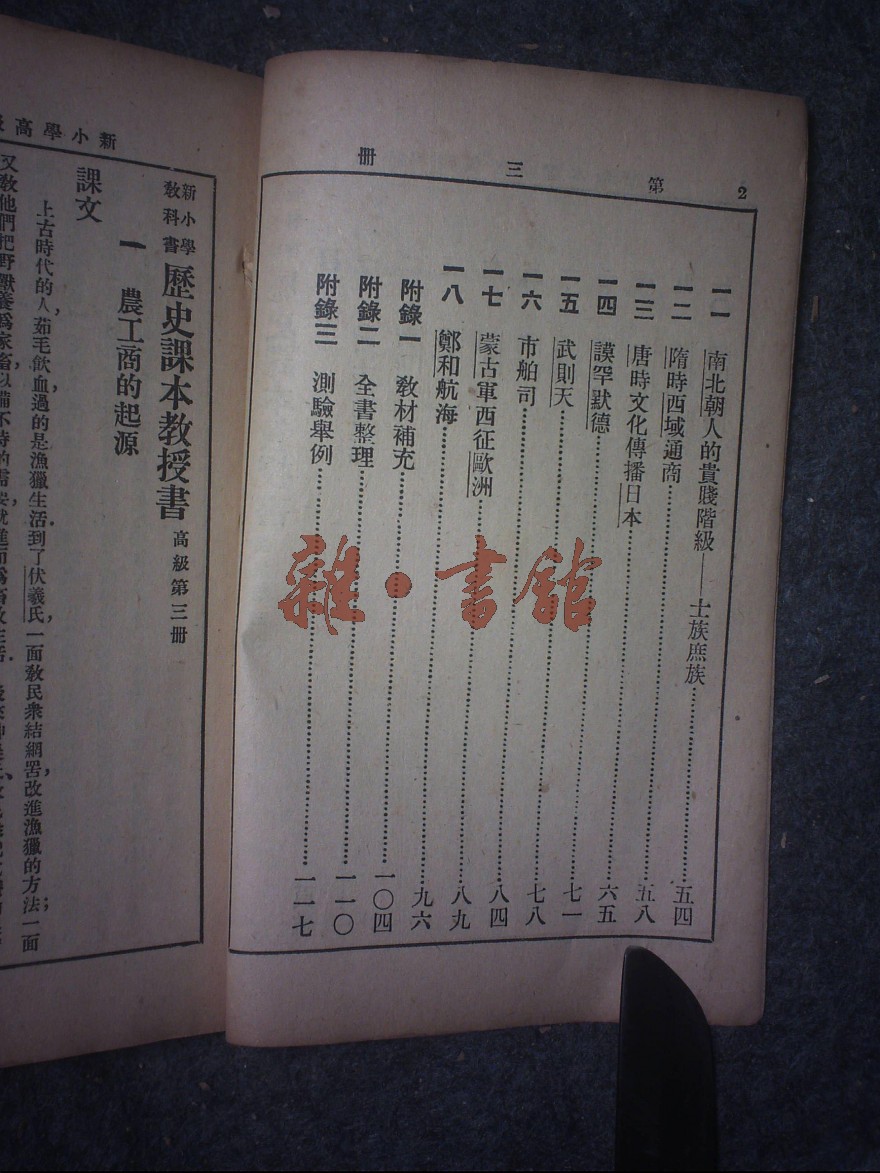 2 第三冊
一一 南北朝人的貴賤階級——士族庶族……五四
一二 隋時西域通商……五八
一三 唐時文化傳播日本……六五
一四 謨罕默德……七一
一五 武則天……七八
一六 市舶司……八四
一七 蒙古軍西征歐洲……八九
一八 鄭和航海……九六
附錄一 教材補充……一〇四
附錄二 全書整理……一一〇
附錄三 測驗舉例……一一七
雜·書館
新小學高
新小學教科書 歷史課本教授書 高級第三冊
一 農工商的起源
課文
上古時代的人，茹毛飲血，過的是漁獵生活．到了伏羲氏，一面教民衆結網罟，改進漁獵的方法；一面
又教他們把野獸養爲家畜，以備不時的需要，就進而爲畜牧生活．